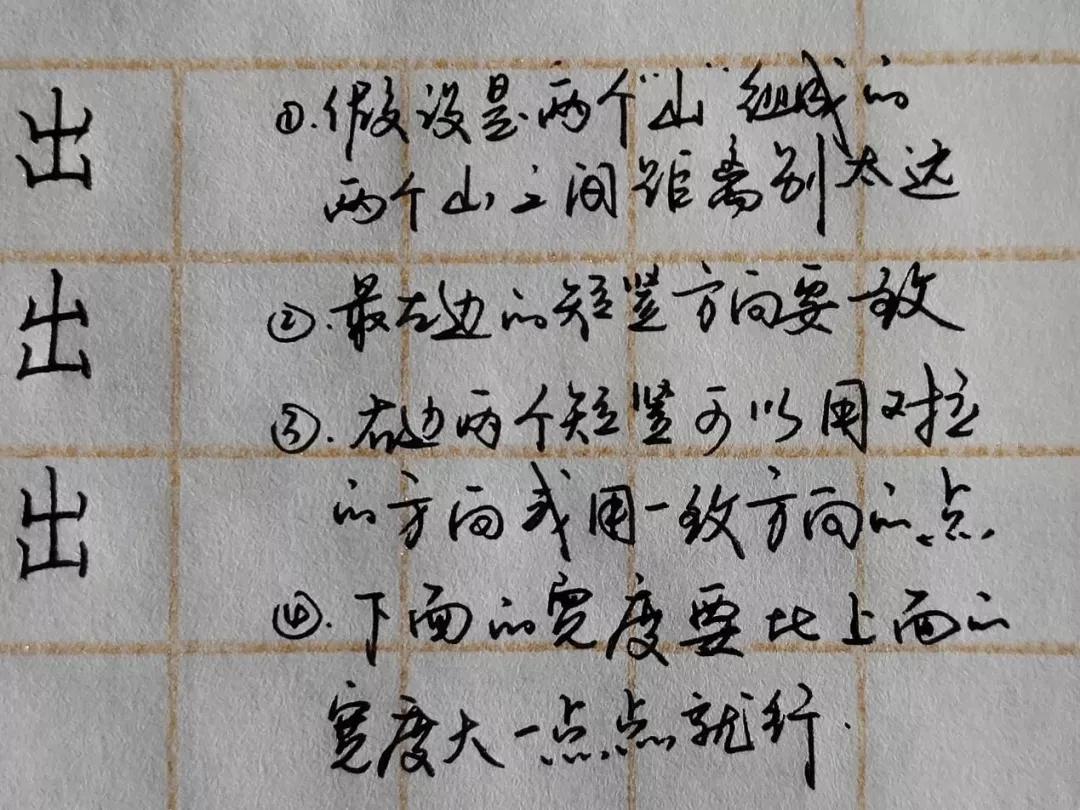 出
出
出
①.假设是两个"山"组成的
两个山之间距离别太远
②.最左边的短竖方向要一致
③.右边两个短竖可以用对拉
的方向或用一致方向的点.
④.下面的宽度要比上面的
宽度大一点点就行.